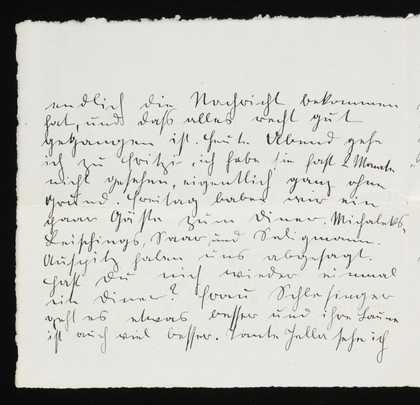 endlich die Nachricht bekommen
hat, und daß alles recht gut
gegangen ist. Heute Abend gehe
ich zu Fritzi, ich habe sie fast 2 Monate
nicht gesehen, eigentlich ganz ohne
Grund. Freitag haben wir ein
paar Gäste zum Diner. Michaleks,
Leischings, Saar und Seligmann.
Auspitz haben uns abgesagt.
Hast Du mich wieder einmal
ein Diner? Frau Schlesinger
geht es etwas besser und ihre Laune
ist auch viel besser. Tante Jella sehe ich